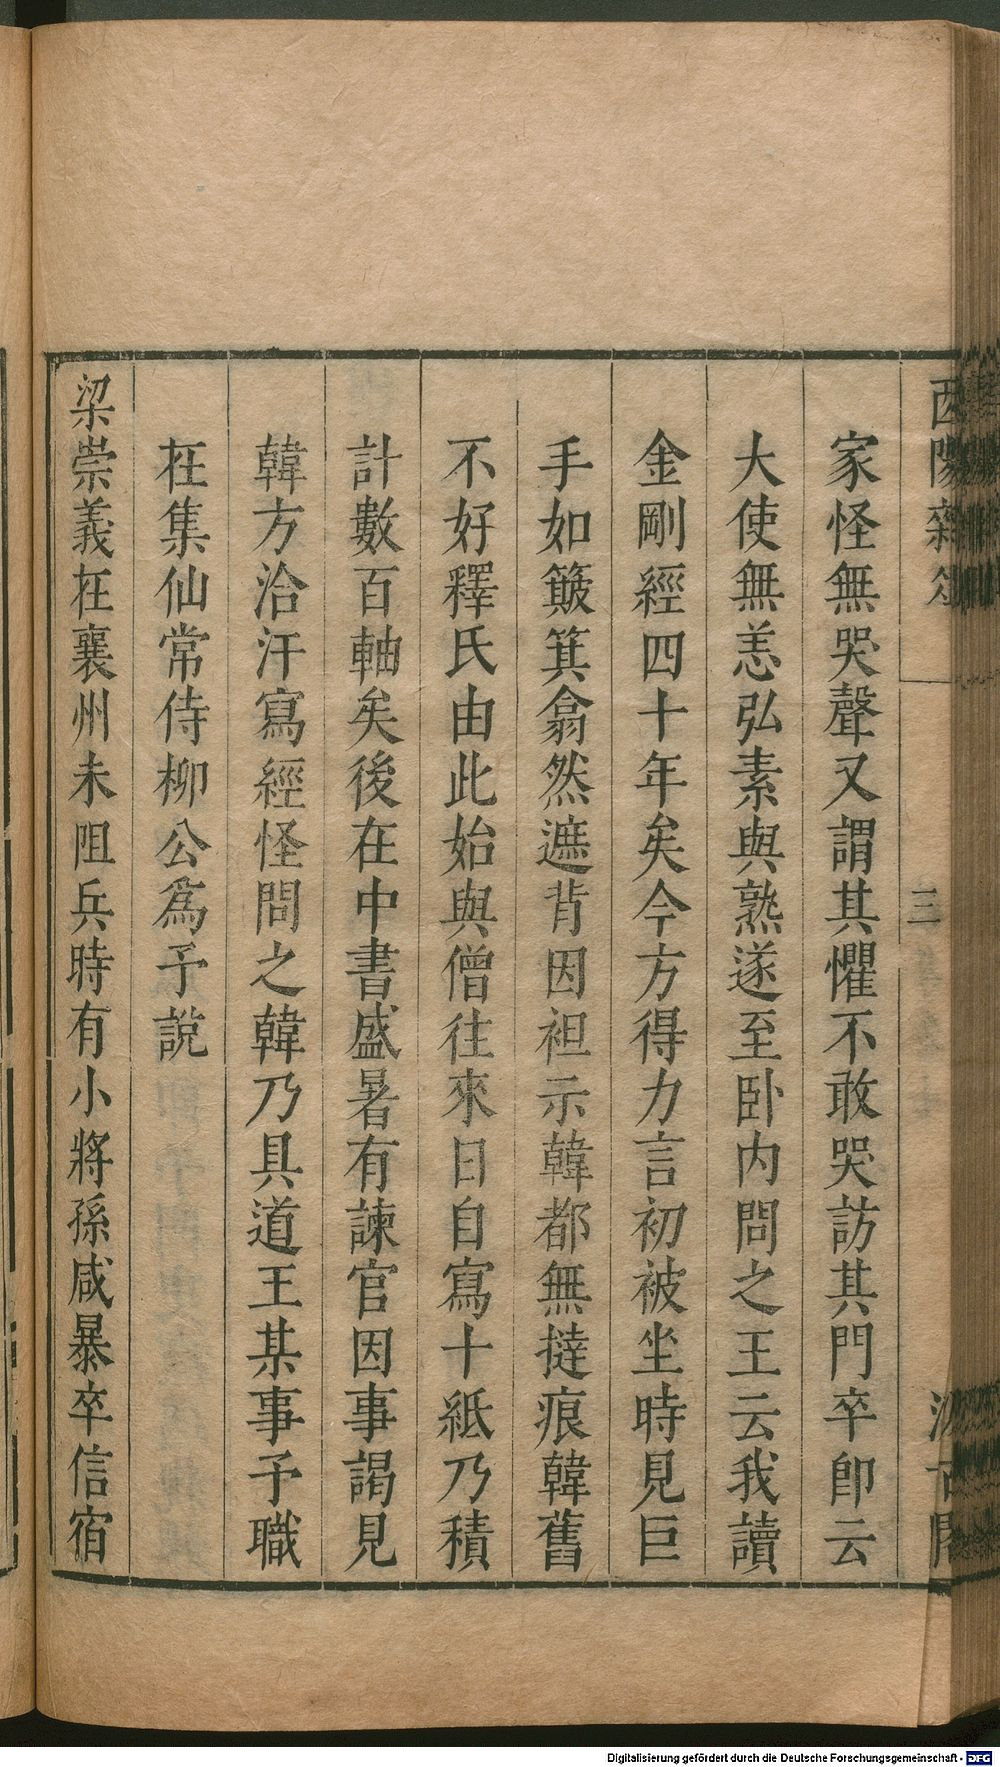 酉陽雜俎
三
汲古閣
家怪無哭聲又謂其懼不敢哭訪其門卒卽云
大使無恙弘素與熟遂至卧内問之王云我讀
金剛經四十年矣今方得力言初被坐時見巨
手如簸箕翕然遮背因袒示韓都無撻痕韓舊
不好釋氏由此始與僧往來日自寫十紙乃積
計數百軸矣後在中書盛暑有諫官因事謁見
韓方洽汗寫經怪問之韓乃具道王某事予職
在集仙常侍柳公爲予說
梁崇義在襄州未阻兵時有小將孫咸暴卒信宿
Digitalisierung gefördert durch die Deutsche Forschungsgemeinschaft - DFG